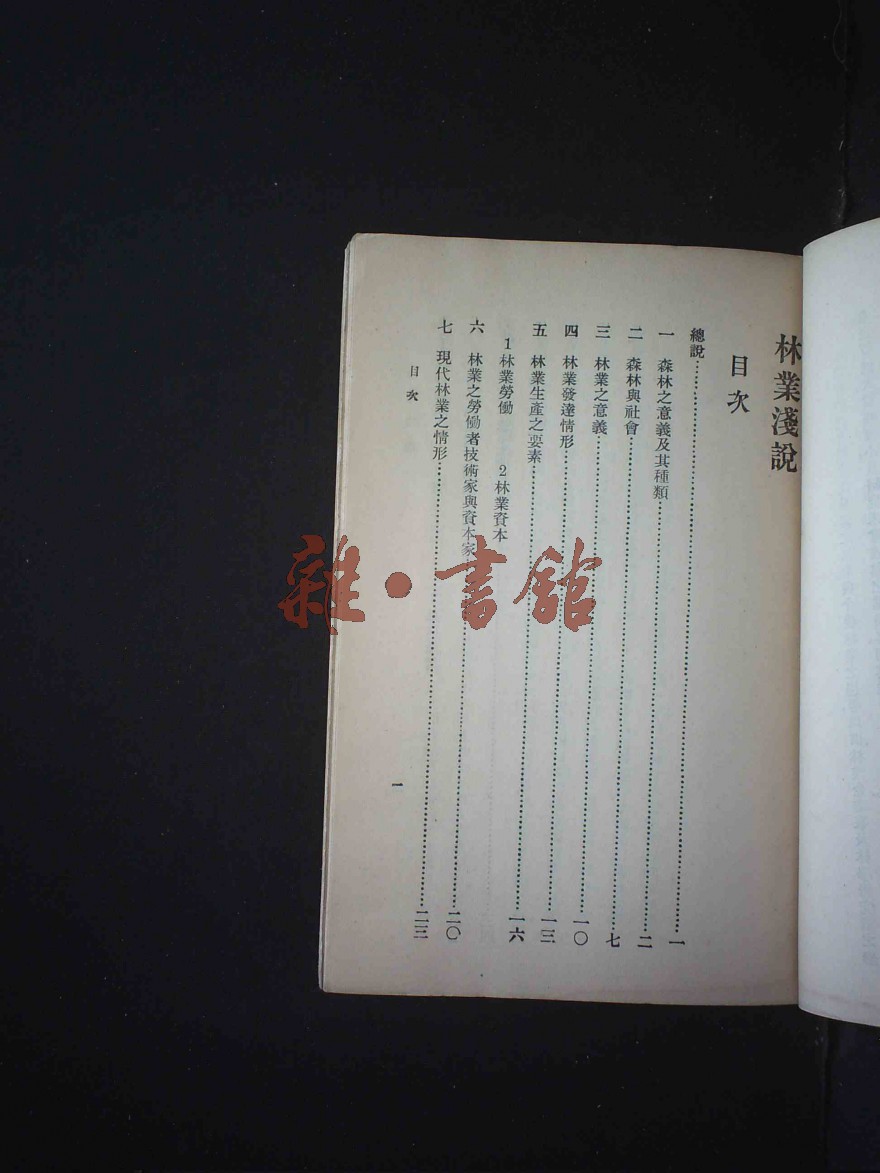 林業淺說
目次
總說⋯⋯⋯⋯⋯⋯一
一 森林之意義及其種類⋯⋯⋯⋯⋯⋯二
二 森林與社會⋯⋯⋯⋯⋯⋯七
三 林業之意義⋯⋯⋯⋯⋯⋯一〇
四 林業發達情形⋯⋯⋯⋯⋯⋯一三
五 林業生產之要素⋯⋯⋯⋯⋯⋯一六
1 林業勞働 2 林業資本
六 林業之勞働者技術家與資本家⋯⋯⋯⋯⋯⋯二〇
七 現代林業之情形⋯⋯⋯⋯⋯⋯二三
目次
一
雜·書館